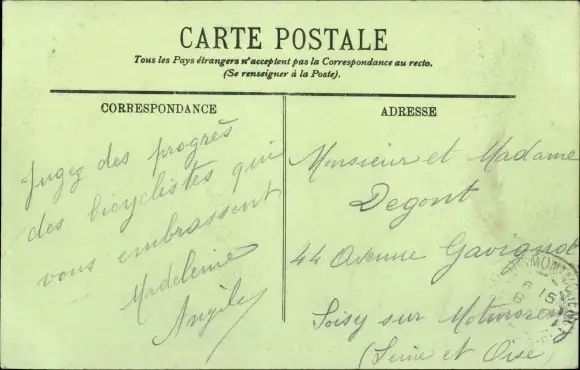 CARTE POSTALE
Tous les Pays étrangers n'acceptent pas la Correspondance au recto.
(Se renseigner à la Poste).
CORRESPONDANCE
Jugez des progrès
des bicyclistes qui
vous embrassent
Madeleine
Angèle
ADRESSE
Monsieur et Madame
Degont
44 Avenue Gavignot
Soisy sur Motmorency
(Seine et Oise)
15